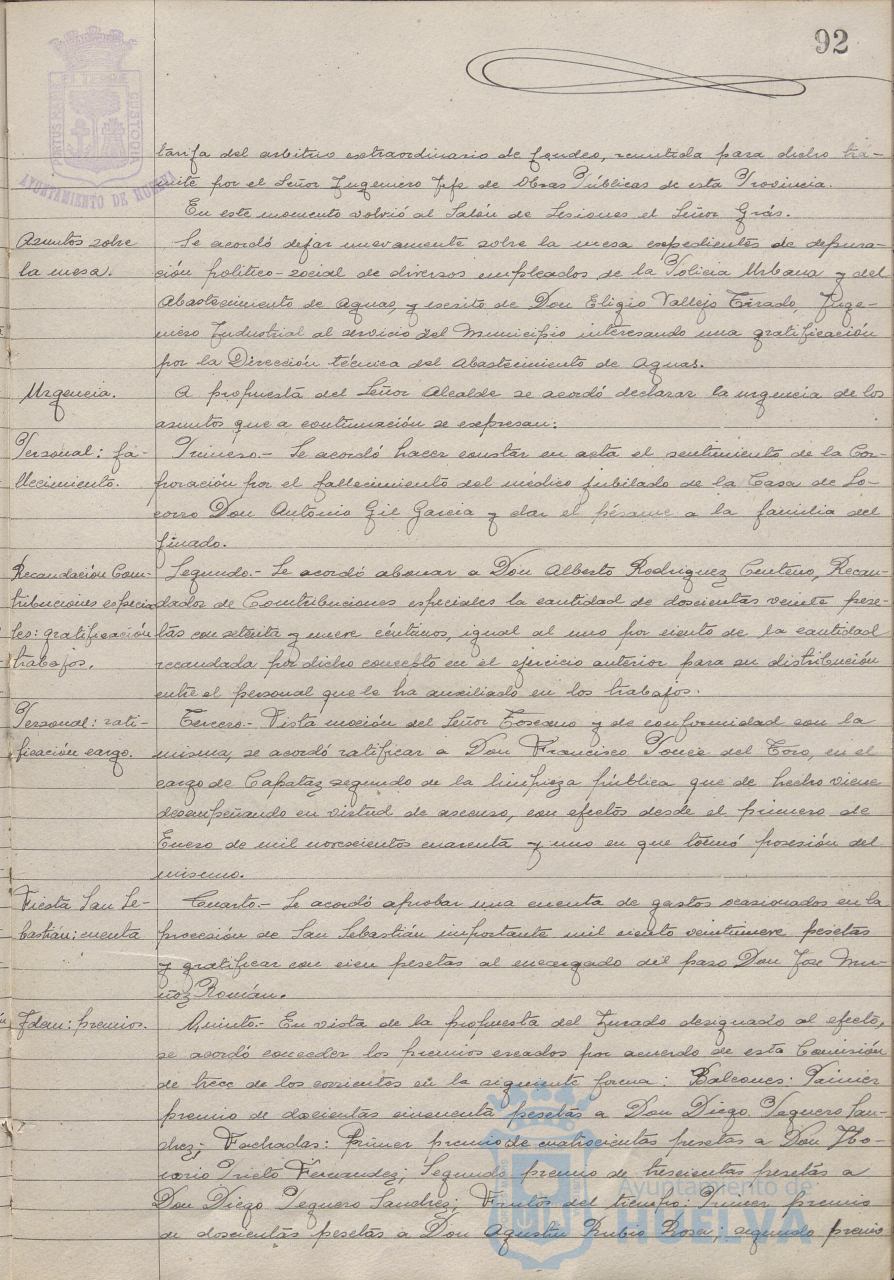 92
PORTUS MARIS ET TERRAE CUSTODIA
AYUNTAMIENTO DE HUELVA
tarifa del arbitrio extraordinario de fondeo, remitida para dicho trá-
mite por el Señor Ingeniero Jefe de Obras Públicas de esta Provincia.
En este momento volvió al Salón de Sesiones el Señor Grás.
Asuntos sobre
la mesa.
Se acordó dejar nuevamente sobre la mesa expedientes de depura-
ción político-social de diversos empleados de la Policía Urbana y del
Abastecimiento de Aguas, y escrito de Don Eligio Vallejo Tirado, Inge-
niero Industrial al servicio del Municipio interesando una gratificación
por la Dirección técnica del Abastecimiento de Aguas.
Urgencia.
A propuesta del Señor Alcalde se acordó declarar la urgencia de los
asuntos que a continuación se expresan:
Personal: fa-
llecimiento.
Primero.- Se acordó hacer constar en acta el sentimiento de la Cor-
poración por el fallecimiento del médico jubilado de la Casa de So-
corro Don Antonio Gil Garcia y dar el pésame a la familia del
finado.
Recaudación Con-
tribuciones especia-
les: gratificación
trabajos.
Segundo.- Se acordó abonar a Don Alberto Rodriguez Centeno, Recau-
dador de Contribuciones especiales la cantidad de doscientas veinte pese-
tas con setenta y nueve céntimos, igual al uno por ciento de la cantidad
recaudada por dicho concepto en el ejercicio anterior para su distribución
entre el personal que le ha auxiliado en los trabajos.
Personal: rati-
ficación cargo.
Tercero.- Vista moción del Señor Toscano y de conformidad con la
misma, se acordó ratificar a Don Francisco Ponce del Toro, en el
cargo de Capataz segundo de la limpieza pública que de hecho viene
desempeñando en virtud de ascenso, con efectos desde el primero de
Enero de mil novescientos cuarenta y uno en que tomó posesión del
mismo.
Fiesta San Se-
bastián: cuenta
Cuarto.- Se acordó aprobar una cuenta de gastos ocasionados en la
procesión de San Sebastián importante mil ciento veintinueve pesetas
y gratificar con cien pesetas al encargado del paso Don Jose Mu-
ñoz Román.
Idem: premios.
Quinto.- En vista de la propuesta del Jurado designado al efecto,
se acordó conceder los premios creados por acuerdo de esta Comisión
de trece de los corrientes en la siguiente forma: Balcones: Primer
premio de doscientas cincuenta pesetas a Don Diego Peguero San-
chez; Fachadas: Primer premio de cuatrocientas pesetas a Don Ho-
norio Prieto Fernandez; Segundo premio de trescientas pesetas a
Don Diego Peguero Sanchez; Frutos del tiempo: Primer premio
de doscientas pesetas a Don Agustín Rubio Rosa, segundo premio
Ayuntamiento de
HUELVA